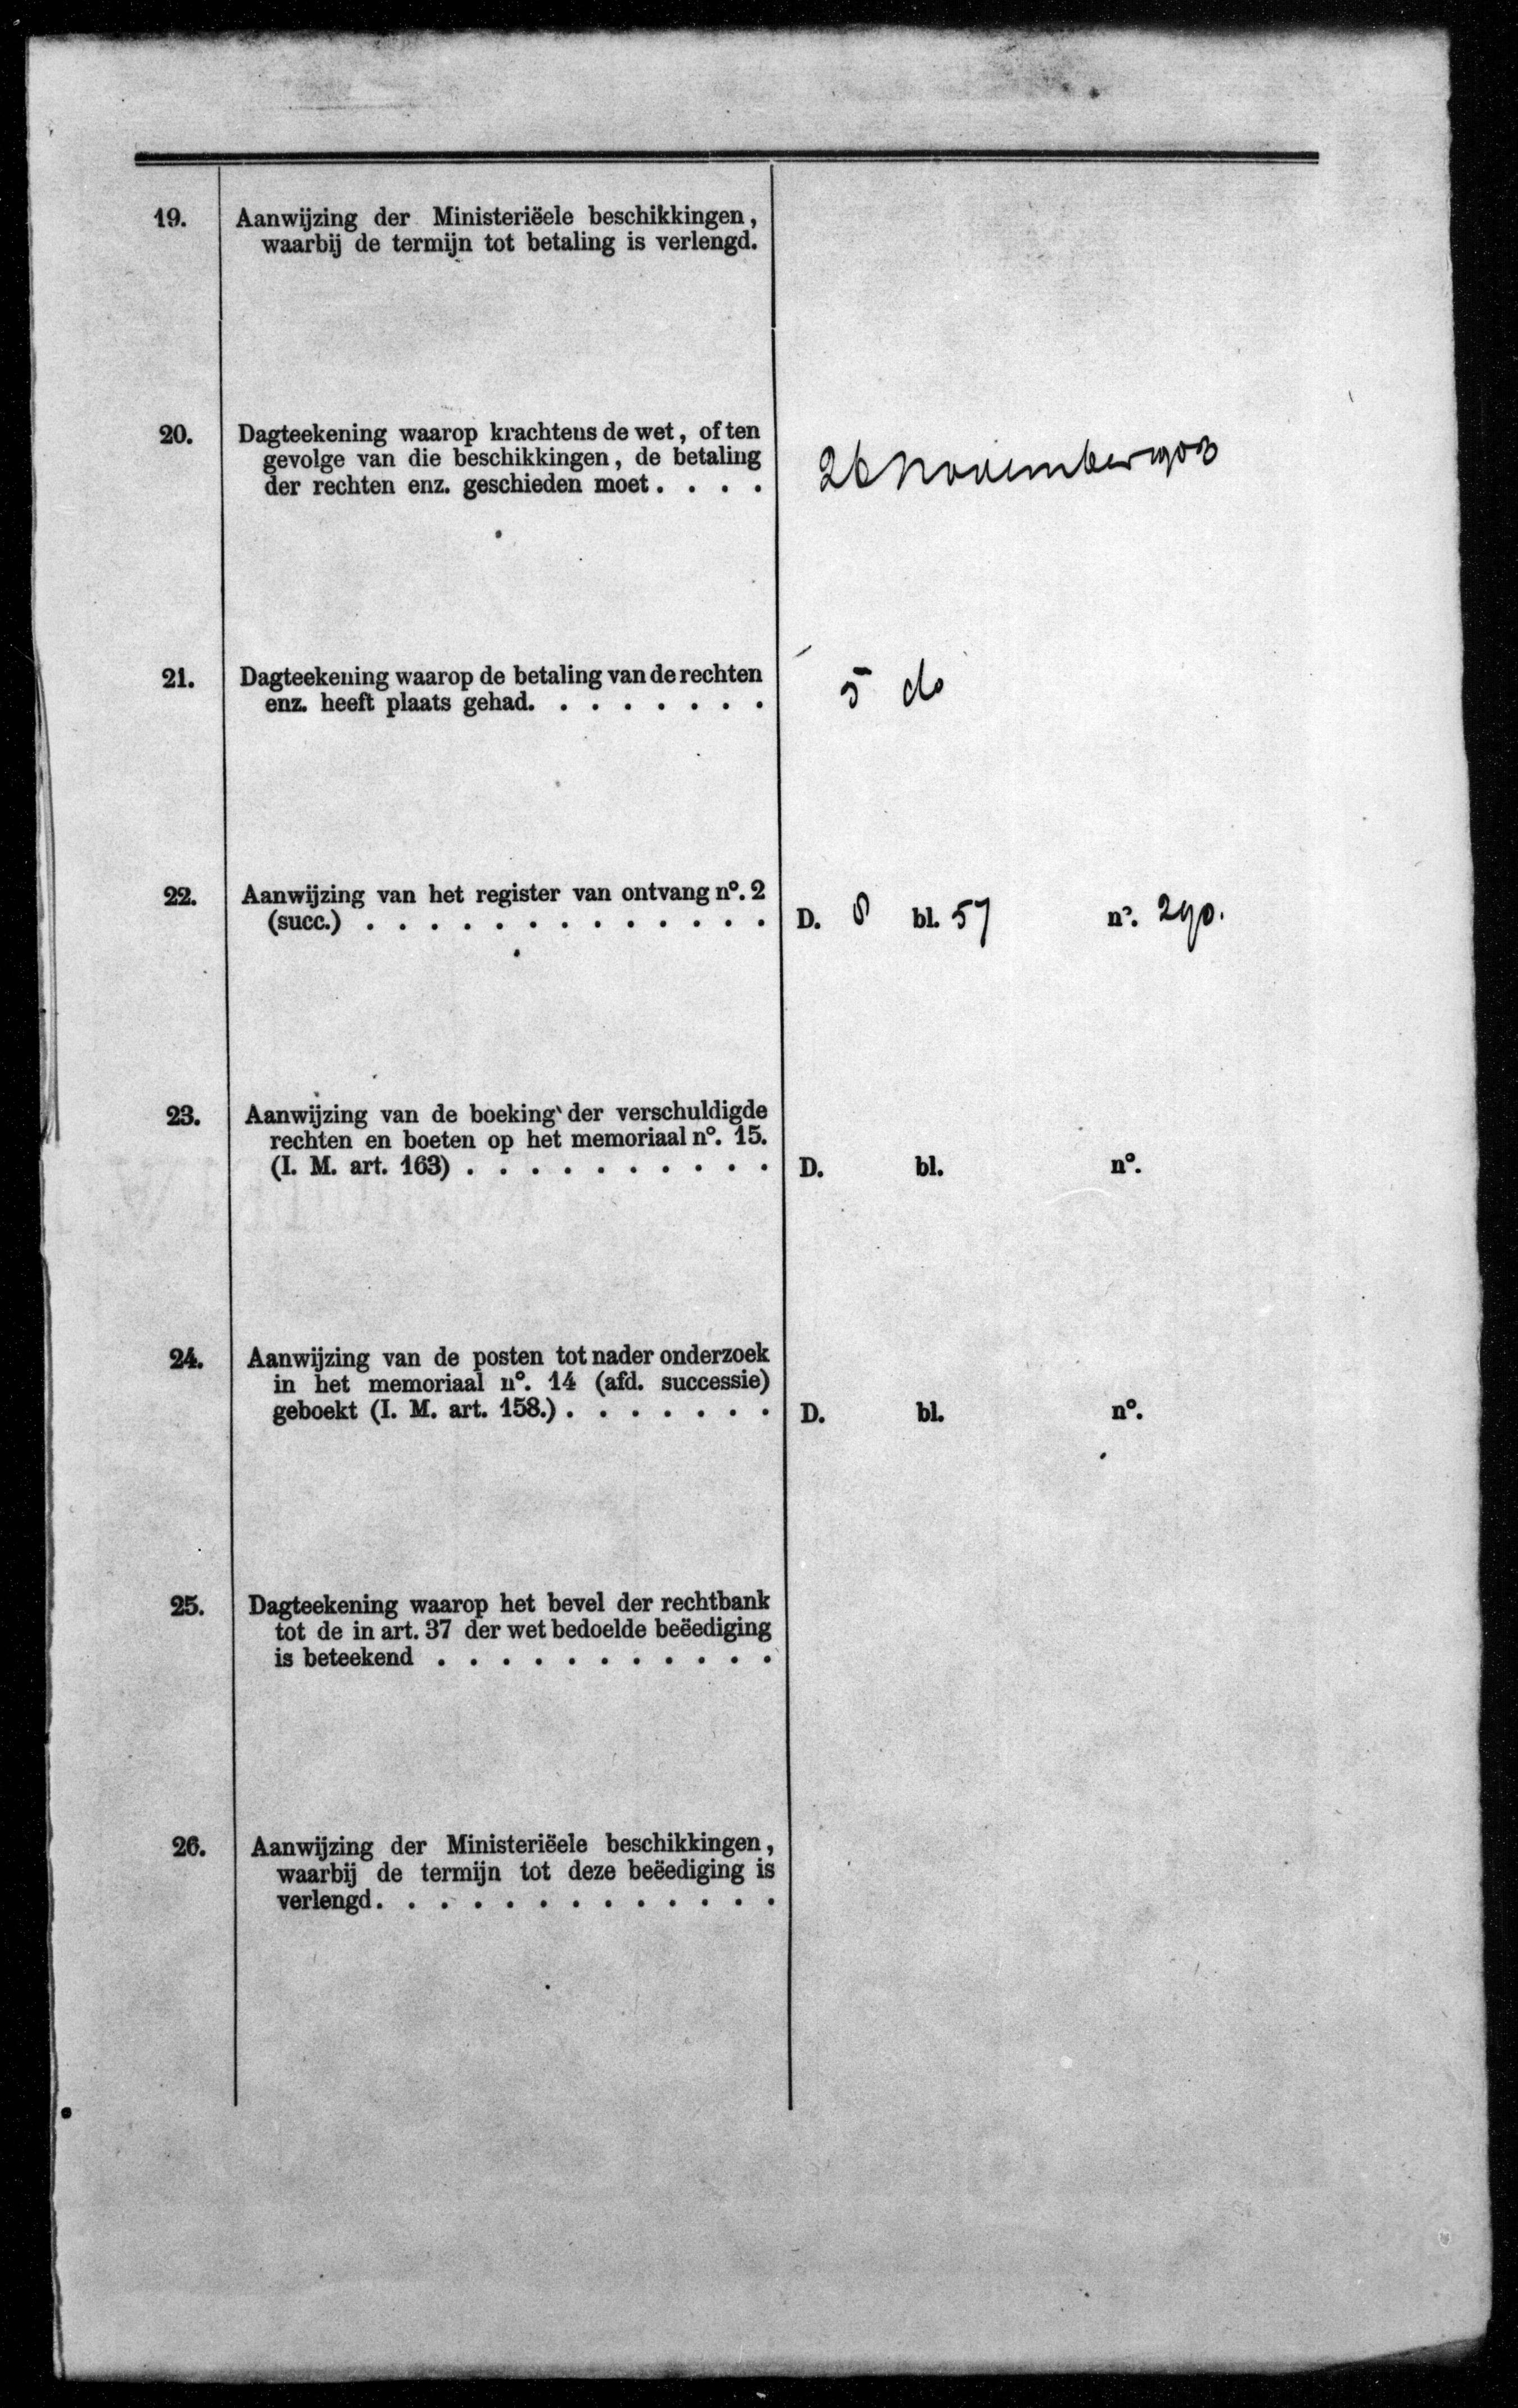 19. Aanwijzing der Ministeriëele beschikkingen,
waarbij de termijn tot betaling is verlengd.
20. Dagteekening waarop krachtens de wet, of ten
gevolge van die beschikkingen, de betaling
der rechten enz. geschieden moet. . . . 26 November 1903
21. Dagteekening waarop de betaling van de rechten
enz. heeft plaats gehad. . . . . . . . 5 do
22. Aanwijzing van het register van ontvang nº. 2
(succ.) . . . . . . . . . . . . . D. 8 bl. 57 nº. 290.
23. Aanwijzing van de boeking der verschuldigde
rechten en boeten op het memoriaal nº. 15.
(I. M. art. 163) . . . . . . . . . . D. bl. nº.
24. Aanwijzing van de posten tot nader onderzoek
in het memoriaal nº. 14 (afd. successie)
geboekt (I. M. art. 158.) . . . . . . . D. bl. nº.
25. Dagteekening waarop het bevel der rechtbank
tot de in art. 37 der wet bedoelde beëediging
is beteekend . . . . . . . . . . .
26. Aanwijzing der Ministeriëele beschikkingen,
waarbij de termijn tot deze beëediging is
verlengd. . . . . . . . . . . . .